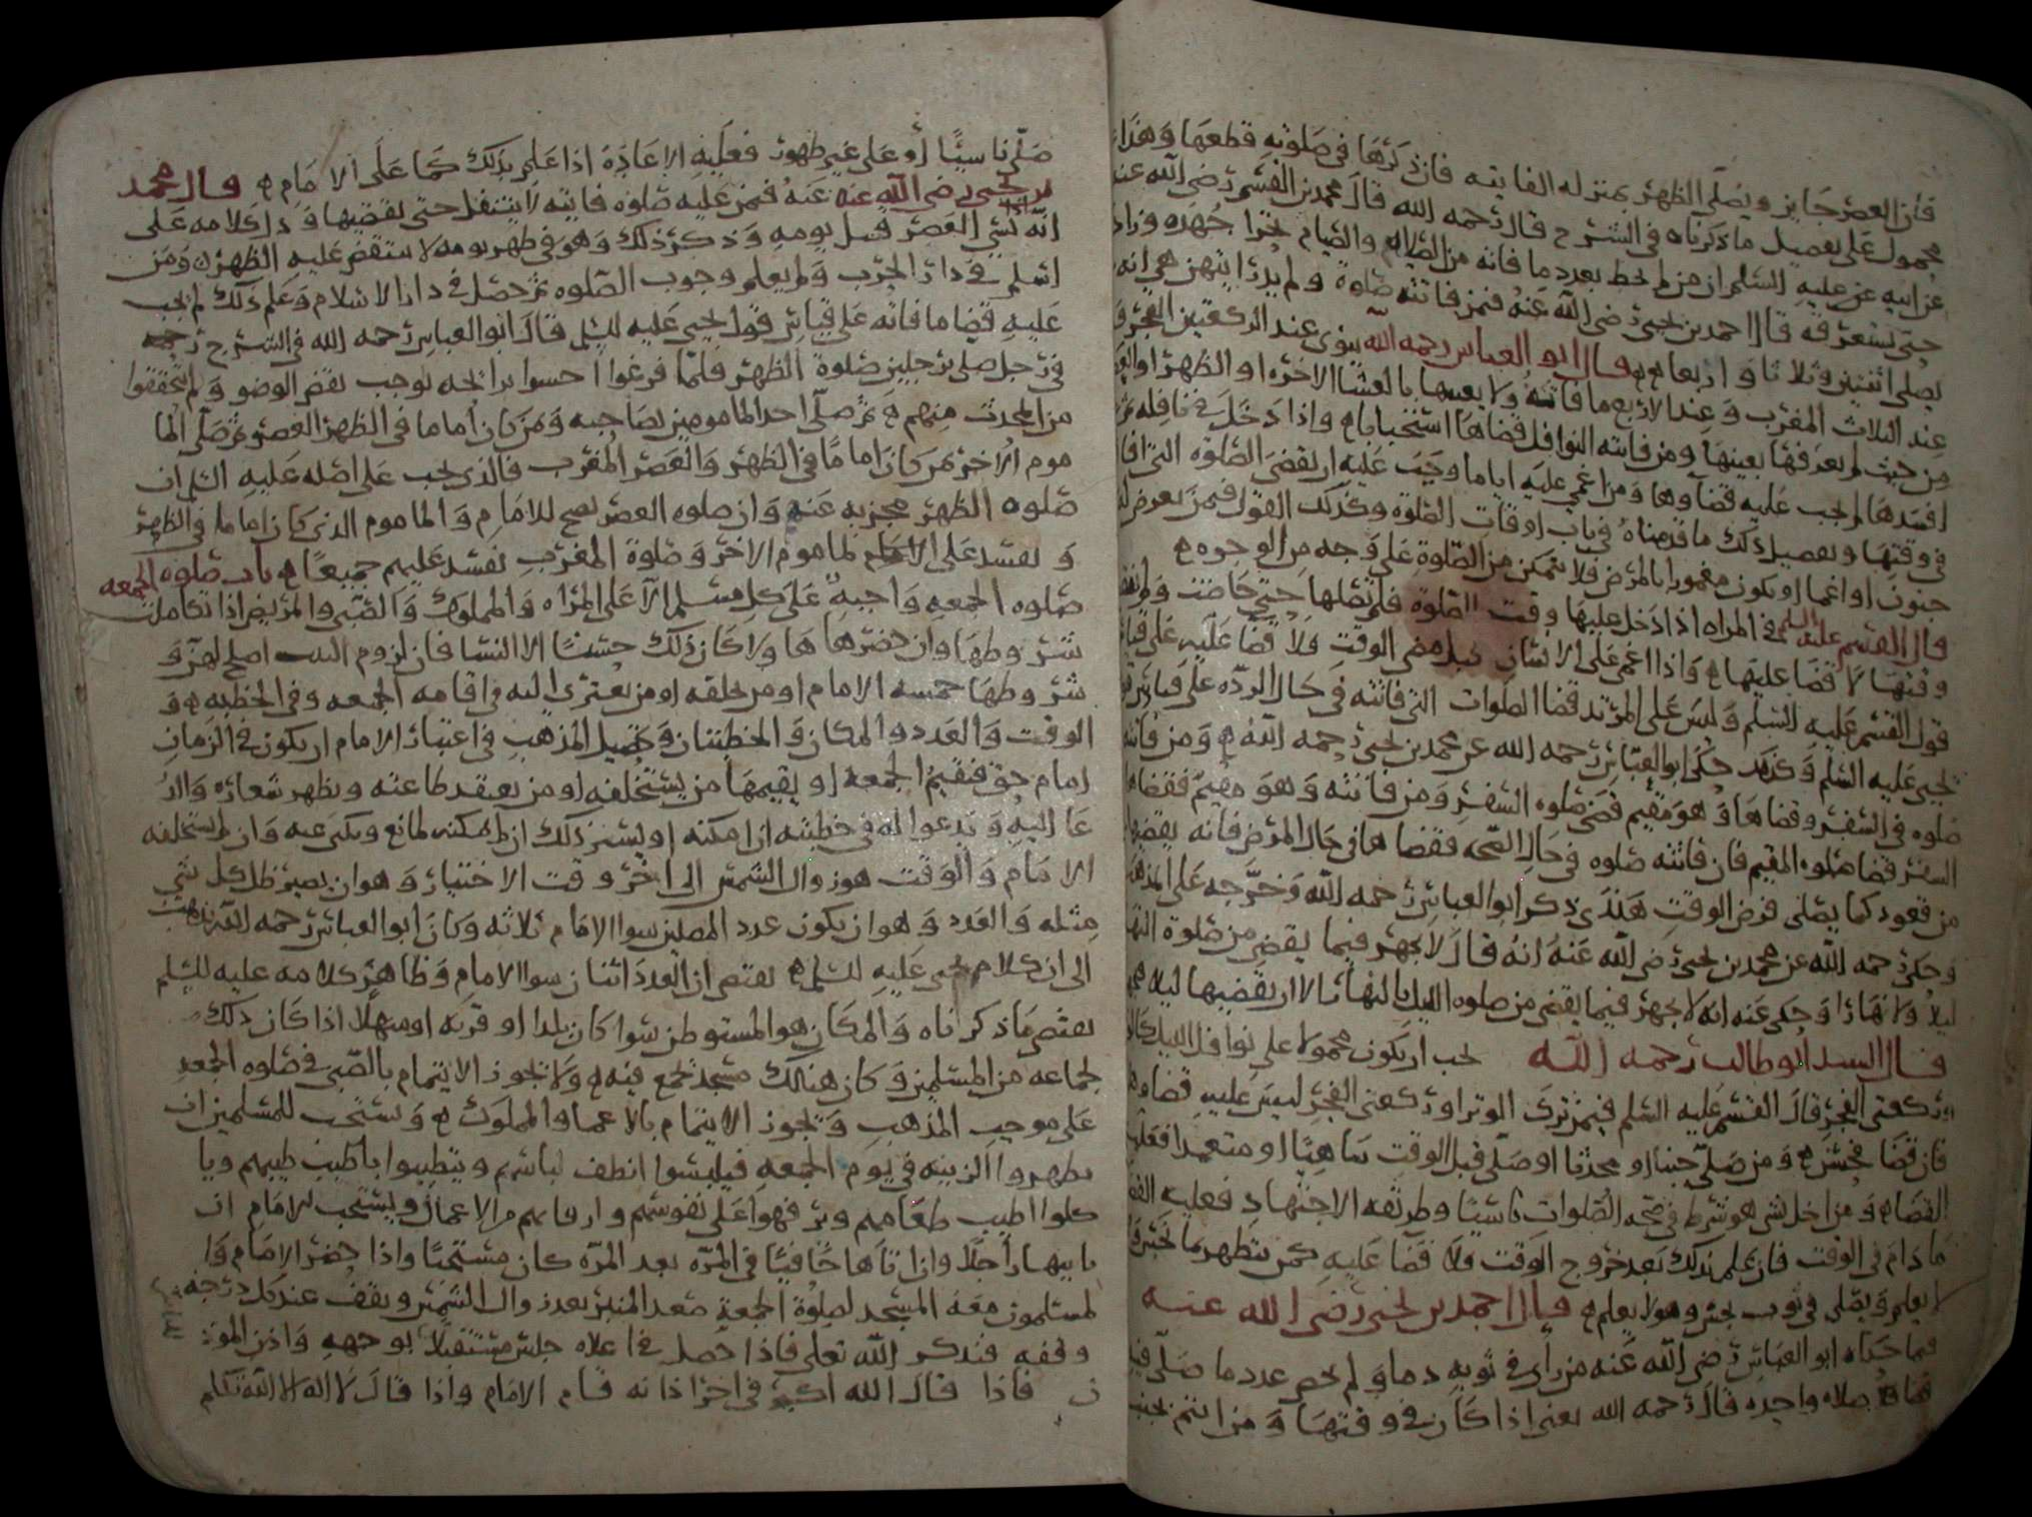 فان العصر جايز ويصلي الظهر بمنزله الفايته فان ذكرها في صلوته قطعها وهذا
محمول على تفصيل ما ذكرناه في الشرح قال رحمه الله قال محمد بن القسم رضي الله عنه
عن ابيه عن عليه السلم ان من لم يحط بعدد ما فاته من الصلاه والصيام تحرا جهده وزاد
حتى يستعرقه قال احمد بن يحيى رضي الله عنه فمن فاتته صلوة ولم يدر ايتهن هي انه
يصلي اثنتين وثلاثا واربعا قال ابو العباس رحمه الله ينوي عند الركعتين الفجر و
عند الثلاث المغرب وعند الاربع ما فاتته ولا يعينها بالعشا الاخره او الظهر او العصر
من حيث لم يعرفها بعينها ومن فاتته النوافل قضاها استحبابا واذا دخل في نافله ثم
افسدها لم يجب عليه قضاوها ومن اغمي عليه اياما وجب عليه ان يقضي الصلوه التي افاق
في وقتها وتفصيل ذلك ما قدمناه في باب اوقات الصلوة وكذلك القول فيمن يعرض له
جنون او اغما او يكون مغمورا بالمرض فلا يتمكن من الصلوة على وجه من الوجوه
قال القسم عليه السلم في المراه اذا دخل عليها وقت الصلوة فلم تصلها حتى حاضت ولم
وقتها لا قضا عليها واذا اغمي على الانسان قبل مضي الوقت فلا قضا عليه على قياس
قول القسم عليه السلم وليس على المرتد قضا الصلوات التي فاتته في حال الرده على قياس قول
يحيى عليه السلم وكذلك حكى ابو العباس رحمه الله عن محمد بن يحيى رحمه الله ومن فاتته
صلوه في السفر وقضاها وهو مقيم قضى صلوه السفر ومن فاتته وهو مقيم فقضاها
السفر قضا صلوه المقيم فان فاتته صلوه في حال الصحه فقضاها في حال المرض فانه يقضيها
من قعود كما يصلي فرض الوقت هكذى ذكر ابو العباس رحمه الله وخرجه على المذهب
وحكى رحمه الله عن محمد بن يحيى رضي الله عنه انه قال لا يجهر فيما يقضي من صلوة النهار
ليلا ولا نهارا وحكى عنه انه لا يجهر فيما يقضي من صلوه الليل نهارا الا ان يقضيها ليلا
قال السيد ابو طالب رحمه الله يجب ان يكون محمولا على نوافل الليل كالوتر
وركعتي الفجر قال القسم عليه السلم فيمن ترك الوتر او ركعتي الفجر ليس عليه قضاوها
فان قضا فحسن ومن صلى جنبا او محدثا او صلى قبل الوقت ساهيا او متعمدا فعليه
القضا ومن اخل بشي هو شرط في صحه الصلوات ناسيا وطريقه الاجتهاد فعليه القضا
ما دام في الوقت فان علم بذلك بعد خروج الوقت فلا قضا عليه كمن يتطهر بما نجس
لا يعلم ويصلي في ثوب نجس وهو لا يعلم قال احمد بن يحيى رضي الله عنه
فيما حكاه ابو العباس رضي الله عنه من راى في ثوبه دما ولم يحص عدد ما صلى فيه
صلاه واحده قال رحمه الله يعني اذا كان في وقتها ومن ائتم بجنب
صلى ناسيا او على غير طهور فعليه الاعادة اذا علم بذلك كما على الامام قال محمد
بن يحيى رضي الله عنه فمن عليه صلوه فايته لا يتنفل حتى يقضيها ودل كلامه على
انه نسي العصر قبل يومه وذكر ذلك وهو في ظهر يومه لا ينتقض عليه الظهر ومن
اسلم في دار الحرب ولم يعلم وجوب الصلوه ثم حصل في دار الاسلام وعلم ذلك لم يجب
عليه قضا ما فاته على قياس قول يحيى عليه السلم قال ابو العباس رحمه الله في الشرح
في رجل صلى برجلين صلوة الظهر فلما فرغوا احسوا برائحه توجب نقض الوضو ولم يتحققوا
من المحدث منهم ثم صلى احد المامومين بصاحبه ومن كان اماما في الظهر العصر ثم صلى الما
موم الاخر بمن كان اماما في الظهر والعصر المغرب فالذي يجب على اصله عليه السلم ان
صلوه الظهر مجزيه عنهم وان صلوه العصر تصح للامام والماموم الذي كان اماما في الظهر
وتفسد على الماموم الاخر وصلوة المغرب تفسد عليهم جميعا باب صلوه الجمعه
صلوه الجمعه واجبه على كل مسلم الا على المراه والمملوك والصبي والمريض اذا تكاملت
شروطها وان حضرها هاولا كان ذلك حسنا الا النسا فان لزوم البيت اصلح لهن و
شروطها خمسه الامام او من يخلفه او من يعتزى اليه في اقامه الجمعه وفي الخطبه و
الوقت والعدد والمكان والخطبتان وتحصيل المذهب في اعتبار الامام ان يكون في الزمان
امام حق فيقيم الجمعة او يقيمها من يستخلفه او من يعتقد طاعته ويظهر شعاره والد
عا اليه ويدعوا له في خطبته ان امكنه او يسر ذلك ان لم يمكنه لمانع ويكنى عنه وان لم يستخلفه
الامام والوقت هو زوال الشمس الى اخر وقت الاختيار وهو ان يصير ظل كل شي
مثله والعدد وهو ان يكون عدد المصلين سوا الامام ثلاثه وكان ابو العباس رحمه الله يذهب
الى ان كلام يحيى عليه السلم يقتضي ان العدد اثنان سوا الامام وظاهر كلامه عليه السلم
يقتضي ما ذكرناه والمكان هو المستوطن سوا كان بلدا او قريه او منهلا اذا كان ذلك
لجماعه من المسلمين وكان هنالك مسجد تجمع فيه ولا تجوز الايتمام بالصبي في صلوه الجمعه
على موجب المذهب وتجوز الايتمام بالاعما والمملوك ويستحب للمسلمين ان
يظهروا الزينه في يوم الجمعه فيلبسوا انظف لباسهم ويتطيبوا باطيب طيبهم ويا
كلوا اطيب طعامهم ويرفهوا على نفوسهم وارقابهم من الاعمال ويستحب للامام ان
ياتيها راجلا وان اتاها حافيا في المره بعد المره كان مستحبا واذا حضر الامام وا
لمسلمون معه المسجد لصلوة الجمعة صعد المنبر بعد زوال الشمس ويقف عند كل درجه
وقفه فيذكر الله تعلى فاذا حصل في اعلاه جلس مستقبلا بوجهه واذن الموذ
ن فاذا قال الله اكبر في اخر اذانه قام الامام واذا قال لا اله الا الله تكلم